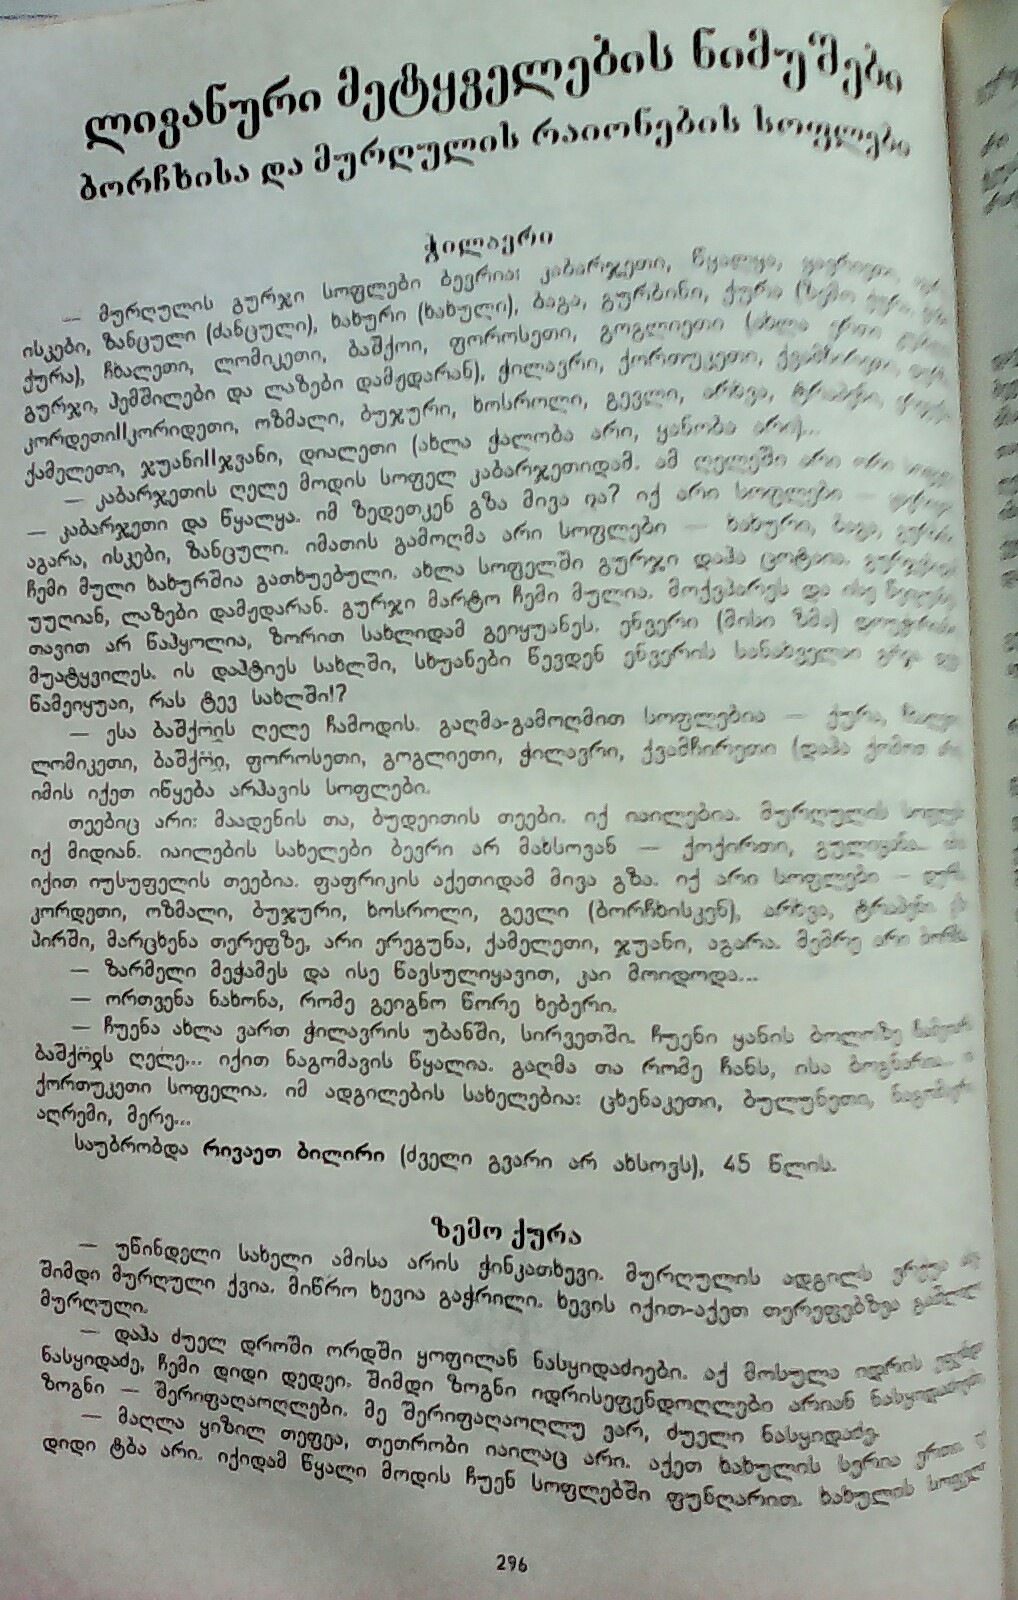 ლივანური მეტყველების ნიმუშები
ბორჩხისა და მურღულის რაიონების სოფლები
ჭილავრი
— მურღულის გურჯი სოფლები ბევრია: კაბარჯეთი, წყალყა,
ისკები, ზანცული (ძანცული), ხახური (ხახული), ბაგა, გურბინი, ქურა (ზემო
ქურა), ჩხალეთი, ლომიკეთი, ბაშქოი, ფოროსეთი, გოგლიეთი (ახლა ერთი
გურჯი, ჰემშილები და ლაზები დამჯდარან), ჭილავრი, ქორთუკეთი,
კორდეთი||კორიდეთი, ოზმალი, ბუჯური, ხოსროლი, გევლი, არხვა,
ქამელეთი, ჯუანი||ჯვანი, დიალეთი (ახლა ქალობა არი, ყანობა არი)...
— კაბარჯეთის ღელე მოდის სოფელ კაბარჯეთიდამ. ამ ღელეში არი ორი
— კაბარჯეთი და წყალყა. იმ ზედეთკენ გზა მივა და? იქ არი სოფლები —
აგარა, ისკები, ზანცული. იმათის გამოღმა არი სოფლები — ხახური, ბაგა,
ჩემი მული ხახურშია გათხუებული. ახლა სოფელში გურჯი დაჰა ცოტაია.
უუღიან, ლაზები დამჯდარან. გურჯი მარტო ჩემი მულია. მოქვპარეს და ისე
თავით არ წაჰყოლია, ზორით სახლიდამ გეიყუანეს. ენვერი (მისი ზმა)
მუატყვილეს. ის დაჰტიეს სახლში, სხუანები წევდენ ენვერის სანახველათ
წამეიყუაი, რას ტევ სახლში!?
— ესა ბაშქოის ღელე ჩამოდის. გაღმა-გამოღმით სოფლებია — ქურა,
ლომიკეთი, ბაშქოი, ფოროსეთი, გოგლიეთი, ჭილავრი, ქვამჩირეთი (დაჰა ქომოთ
იმის იქეთ იწყება არჰავის სოფლები.
თეებიც არი: მაადენის თა, ბუდეითის თეები. იქ იაილებია. მურღულის
იქ მიდიან. იაილების სახელები ბევრი არ მახსოვან — ქოქირთი,
იქით იუსუფელის თეებია. ფაფრიკის აქეთიდამ მივა გზა. იქ არი სოფლები —
კორდეთი, ოზმალი, ბუჯური, ხოსროლი, გევლი (ბორჩხისკენ), არხვა,
პირში, მარცხენა თერეფზე, არი ერეგუნა, ქამელეთი, ჯუანი, აგარა. მემრე არი
— ზარმელი მეჭამეს და ისე წავსულიყავით, კაი მოიდოდა...
— ორთვენა ნახონა, რომე გეიგნო წორე ხებერი.
— ჩუენა ახლა ვართ ჭილავრის უბანში, სირვეთში. ჩუენი ყანის ბოლოზე
ბაშქოის ღელე... იქით ნაგომავის წყალია. გაღმა თა რომე ჩანს, ისა
ქორთუკეთი სოფელია. იმ ადგილების სახელებია: ცხენაკეთი, ბულუნეთი,
აღრემი, მერე...
საუბრობდა რივაეთ ბილირი (ძველი გვარი არ ახსოვს), 45 წლის.
ზემო ქურა
— უწინდელი სახელი ამისა არის ჭინკათხევი. მურღულის ადგილს
შიმდი მურღული ქვია. მიწრო ხევია გაჭრილი. ხევის იქით-აქეთ თერეფებზეა
მურღული.
— დაჰა ძუელ დროში ორდში ყოფილან ნასყიდაძიები. აქ მოსულა იდრის
ნასყიდაძე, ჩემი დიდი დედეი. შიმდი ზოგნი იდრისეფენდოღლები არიან
ზოგნი — შერიფაღაოღლები. მე შერიფაღაოღლუ ვარ, ძუელი ნასყიდაძე.
— მაღლა ყიზილ თეფეა, თეთრობი იაილაც არი. აქეთ ხახულის სერია ერთი
დიდი ტბა არი. იქიდამ წყალი მოდის ჩუენ სოფლებში ფუნღარით. ხახულის
296